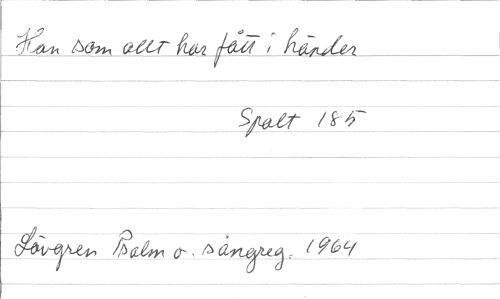 Han som allt har fått i händer
Spalt 185
Lövgren Psalm o. sångreg. 1964